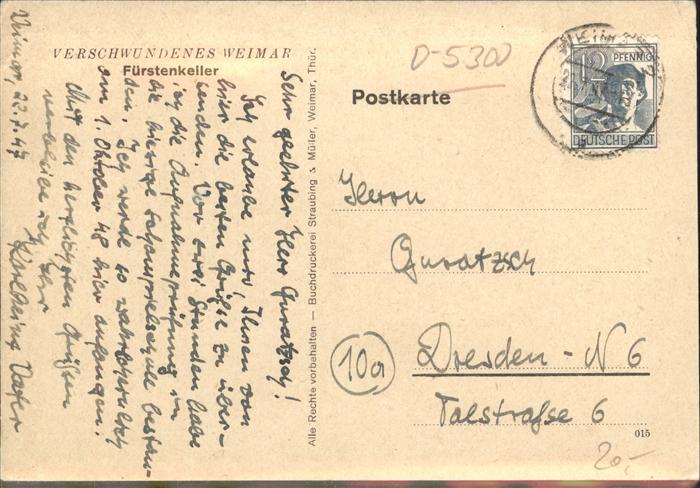 VERSCHWUNDENES WEIMAR
Fürstenkeller
Weimar, 22.7.47
Sehr geehrter Herr Guratzsch!
Ich erlaube mir, Ihnen von
hier die besten Grüße zu über-
senden. Vor drei Stunden habe
ich die Aufnahmeprüfung in
die hiesige Schauspielschule bestan-
den. Ich werde so wahrscheinlich
am 1. Oktober 48 hier anfangen.
Mit den herzlichsten Grüßen
verbleibe ich Ihr
Karlheinz
Alle Rechte vorbehalten — Buchdruckerei Straubing & Müller, Weimar, Thür.
D-5300
Postkarte
12 PFENNIG
DEUTSCHE POST
Herrn
Guratzsch
10a
Dresden - N 6
Talstraße 6
015
20,-